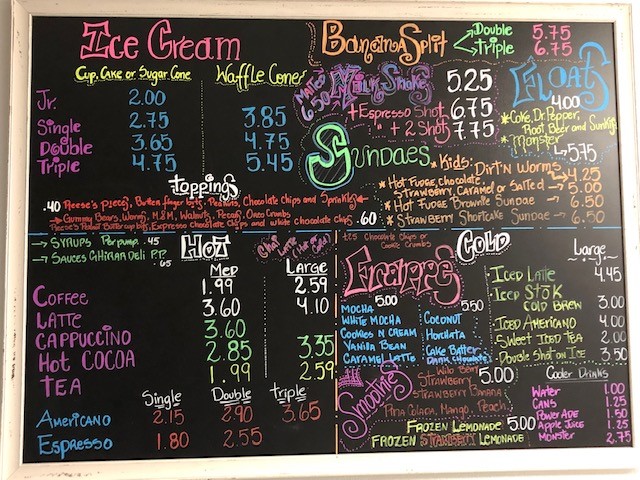 Ice Cream
Cup, Cake or Sugar Cone Waffle Cone
Jr. 2.00
Single 2.75 3.85
Double 3.65 4.75
Triple 4.75 5.45
Toppings
.40 Reese's pieces, Butterfinger bits, Peanuts, Chocolate Chips and Sprinkles
Gummy Bears, Worms, M&M, Walnuts, Pecans, Oreo Crumbs
Reese's Peanut Butter cup bits, Espresso chocolate Chips and white chocolate Chips .60
Banana Split Double 5.75
Triple 6.75
Malted 6.50 Milk Shake 5.25
+ Espresso Shot 6.75
" + 2 Shots 7.75
Floats
4.00
*Coke, Dr. Pepper,
Root Beer and Sunkist
*Monster
5.75
Sundaes
*Kids: Dirt N Worms 4.25
*Hot Fudge, Chocolate
Strawberry, Caramel or Salted 5.00
*Hot Fudge Brownie Sundae 6.50
*Strawberry Shortcake Sundae 6.50
Syrups Per pump .45
Sauces Ghirardeli P.P. .65
Hot
Med Large
Coffee 1.99 2.59
Latte 3.60 4.10
Cappuccino 3.60
Hot Cocoa 2.85 3.35
Tea 1.99 2.59
Single Double Triple
Americano 2.15 2.90 3.65
Espresso 1.80 2.55
Chocolate Chips or
Cookie Crumbs
Cold
Frappes
5.00 5.50
Mocha
White Mocha
Cookies N Cream
Vanilla Bean
Caramel Latte
Coconut
Horchata
Cake Batter
Dark Chocolate
Smoothies
Wild Berry 5.00
Strawberry
Strawberry Banana
Pina Colada, Mango, Peach
Frozen Lemonade 5.00
Frozen Strawberry Lemonade
Large
Iced Latte 4.45
Iced Stok
Cold Brew 3.00
Iced Americano 4.00
Sweet Iced Tea 2.00
Double Shot on Ice 3.50
Cooler Drinks
Water 1.00
Cans 1.25
Powerade 1.50
Apple Juice 1.25
Monster 2.75